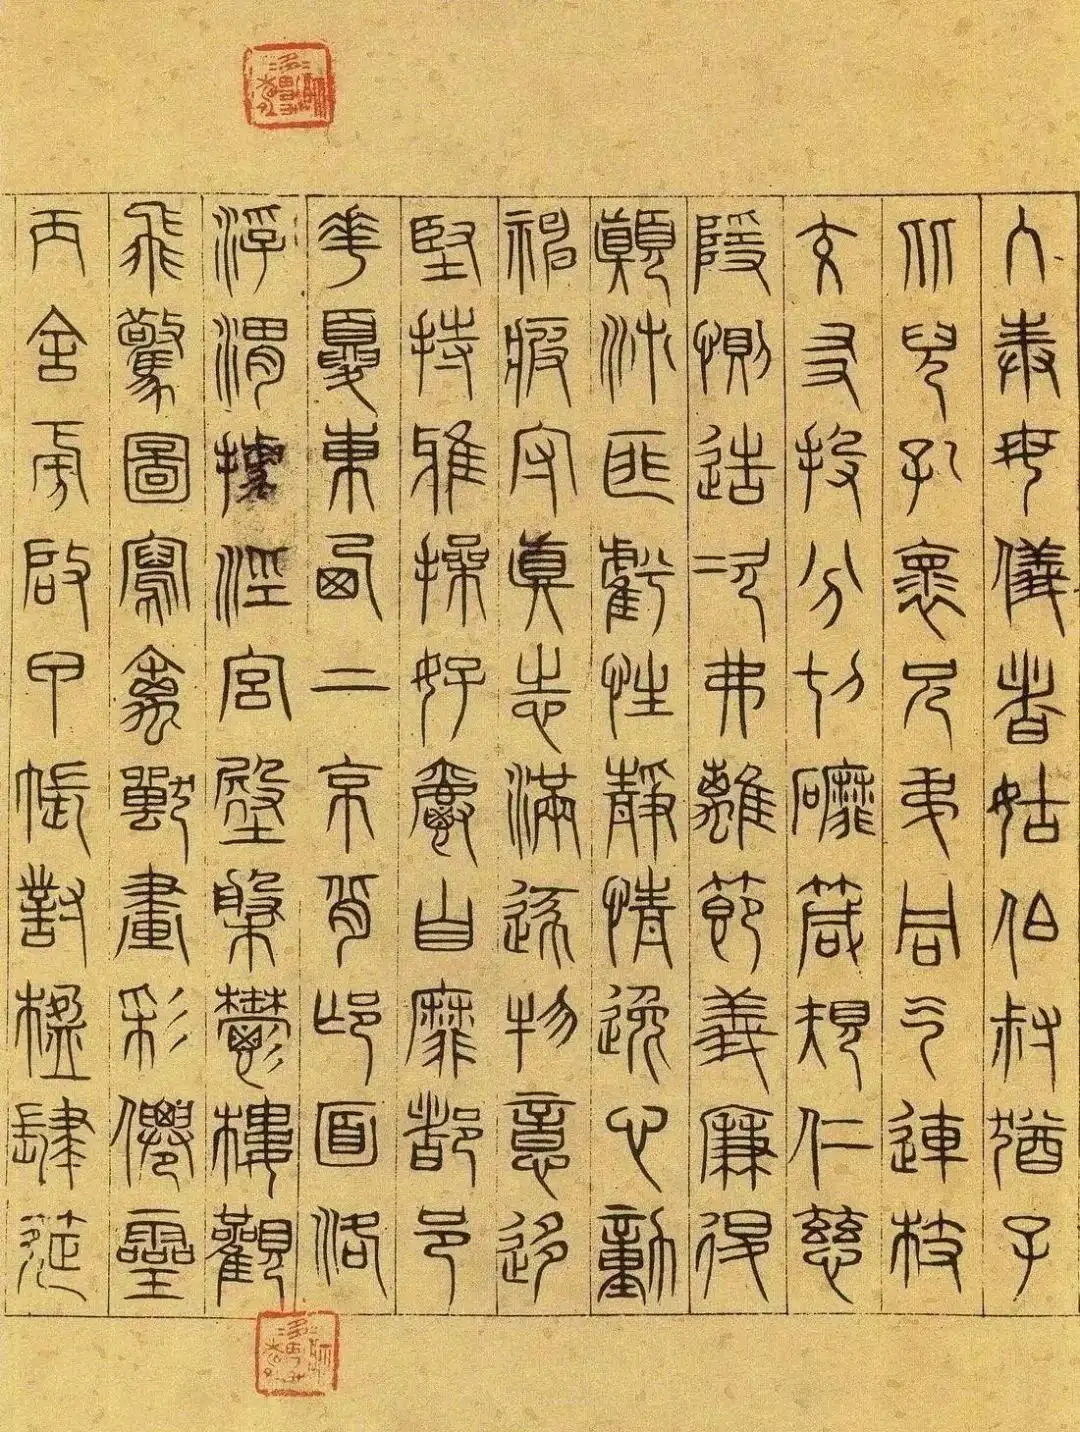 入奉母儀者姑伯叔猶子
比兒孔褱兄弟同气連枝
交友投分切磨箴規仁慈
隱惻造次弗離節義廉退
顛沛匪虧性靜情逸心動
神疲守真志滿逐物意移
堅持雅操好爵自縻都邑
華夏東西二京背邙面洛
浮渭據涇宮殿盤鬱樓觀
飛驚圖寫禽獸畫彩僊靈
丙舍旁啟甲帳對楹肆筵